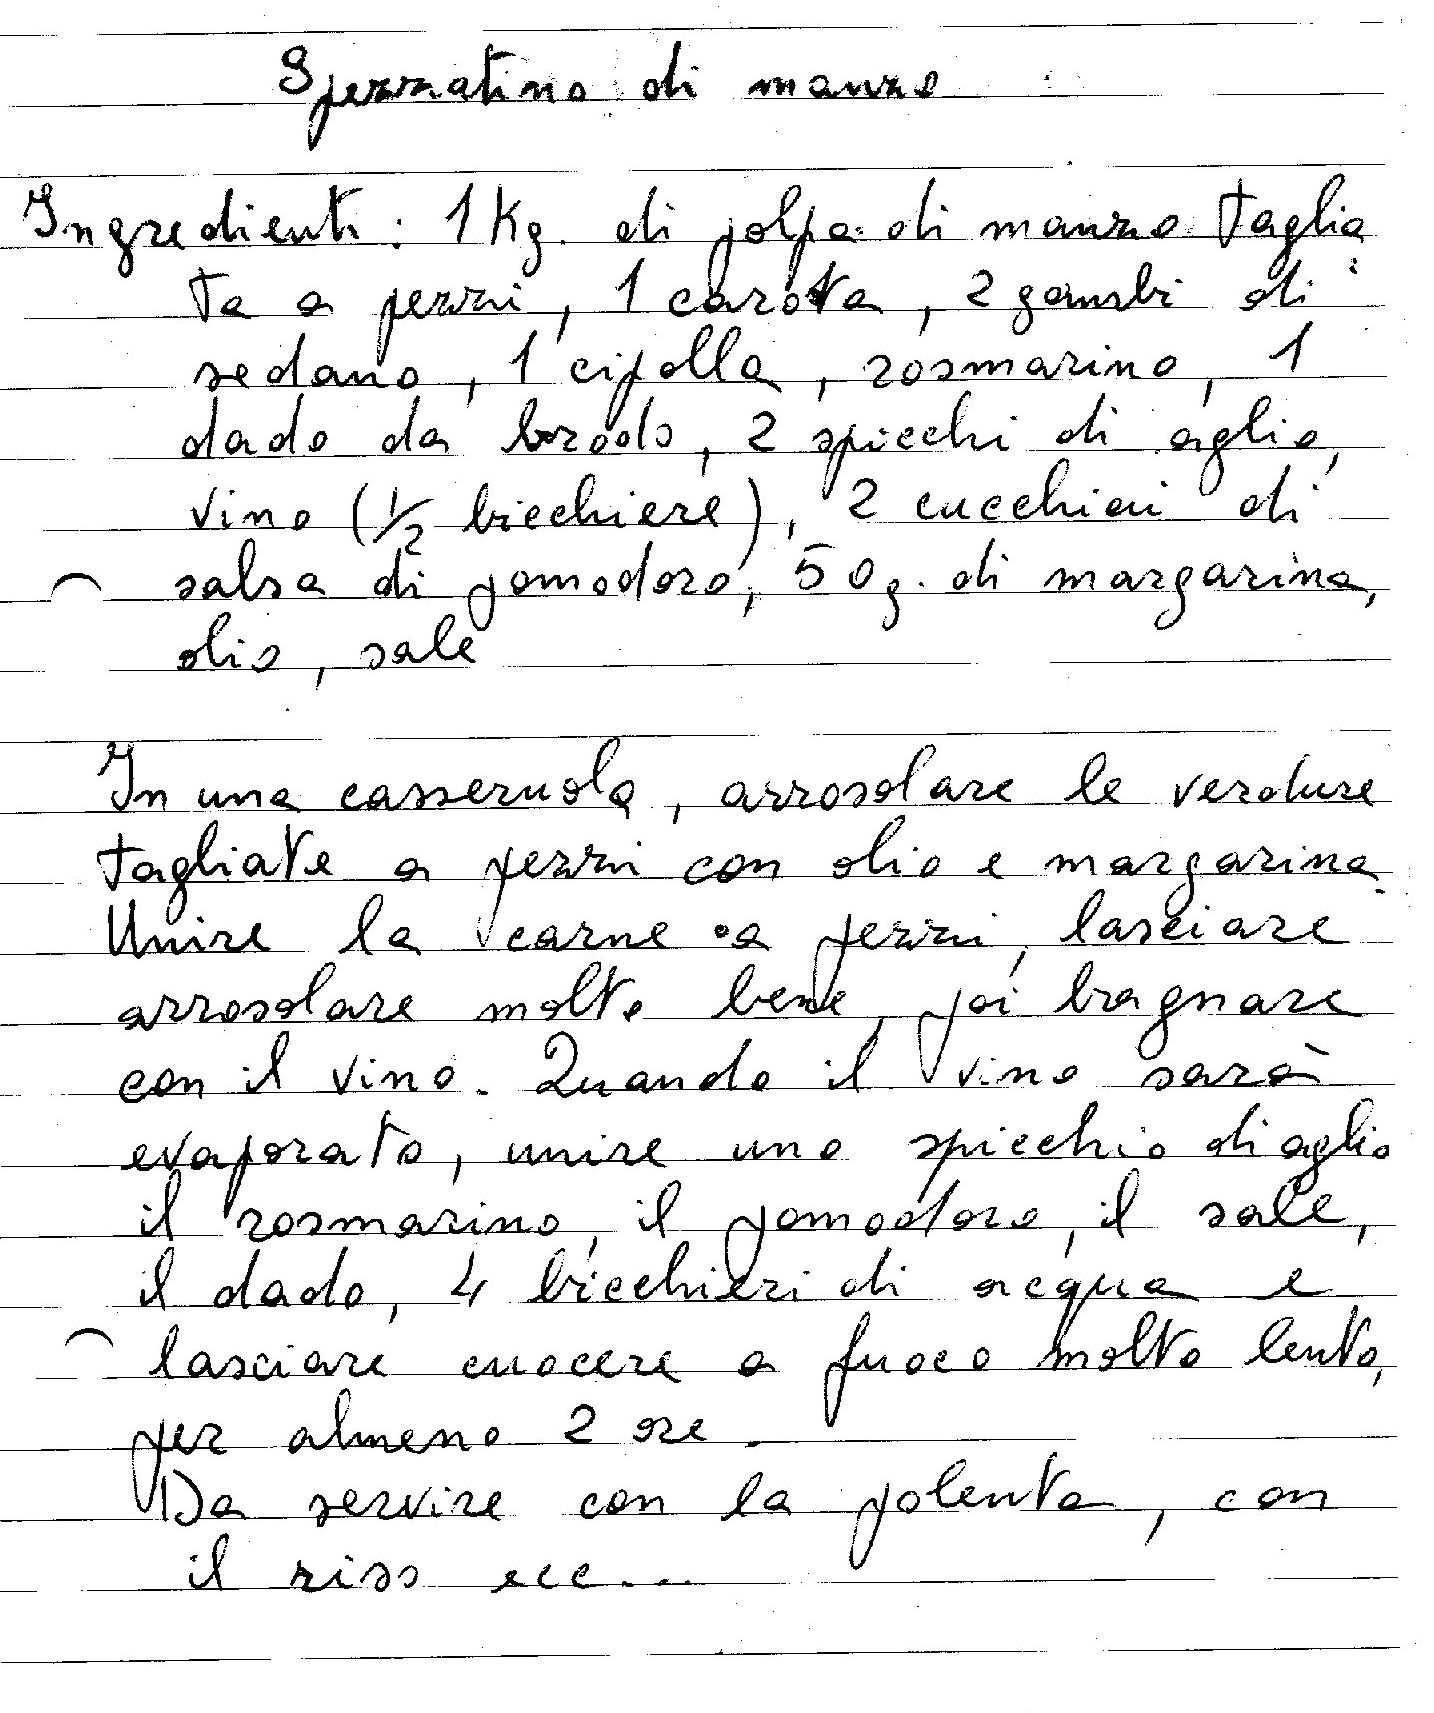 Spezzatino di manzo
Ingredienti: 1 Kg. di polpa di manzo taglia
ta a pezzi, 1 carota, 2 gambi di
sedano, 1 cipolla, rosmarino, 1
dado da brodo, 2 spicchi di aglio,
vino (1/2 bicchiere), 2 cucchiai di
salsa di pomodoro, 50 g. di margarina,
olio, sale
In una casseruola, arrosolare le verdure
tagliate a pezzi con olio e margarina.
Unire la carne a pezzi, lasciare
arrosolare molto bene, poi bagnare
con il vino. Quando il vino sarà
evaporato, unire uno spicchio di aglio
il rosmarino, il pomodoro, il sale,
il dado, 4 bicchieri di acqua e
lasciare cuocere a fuoco molto lento,
per almeno 2 ore.
Da servire con la polenta, con
il riso ecc...